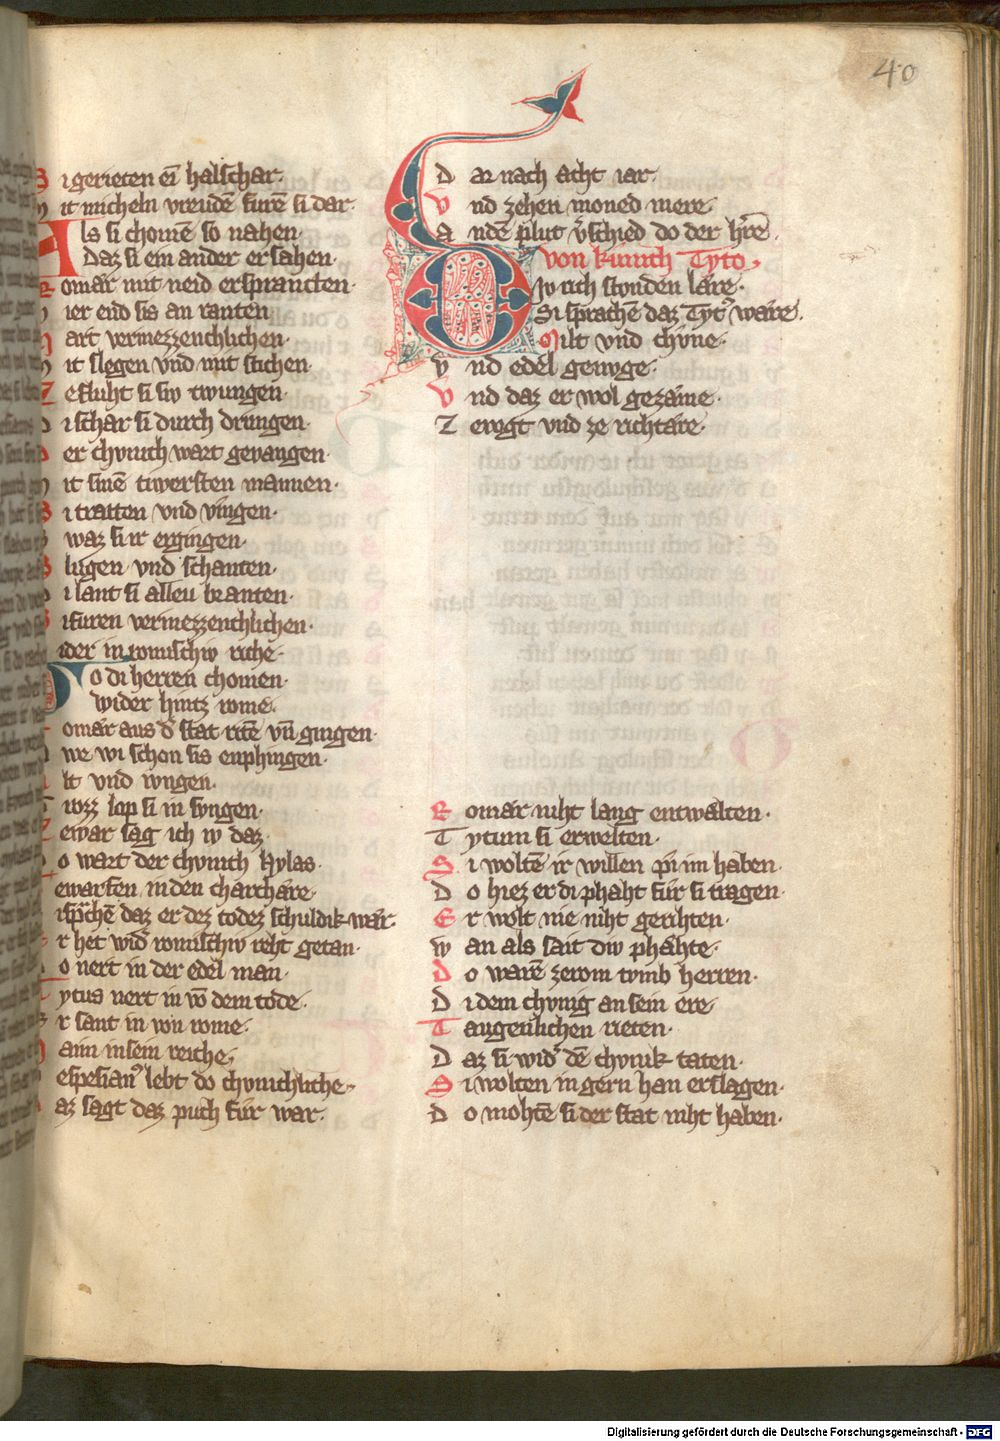 40
S igerieten ei᷅ halschar·
M it micheln vreudē furē si dar·
A ls si chomē so nahen·
Daz si ein ander ersahen·
R omår mit neid ersprancten·
ier end sis an ranten
art vermezzenchlichen·
M it slegen vnd mit stichen·
Z efluht si siv twungen·
D i schar si durch drungen·
D er chvnich wart gevangen·
M it sinē tiwersten mannen·
S i tratten vnd viengen·
waz si ir ergingen·
S lugen vnd schanten·
D i lant si alleu branten·
S i furen vermezzenchlichen·
ider in romischiv riche·
D o di herren chomen·
wider hintz rome·
omår aus d͛ stat ritē vn̄ gingen·
we wi schon sis enphingen·
lt vnd ivngen·
iwzz lop si in svngen·
Z ewar sag ich iv daz
D o wart der chvnich Hylas·
ewarfen in den charchåre·
i sp͛chē daz er dez todez schuldik wår·
E r het wid͛ romischiv reht getan·
D o nert in der edel man·
T ytus nert in võ dem tode·
E r sant in von rome·
aim in sein reiche·
V espesian᷒ lebt do chvnichliche·
D az sagt daz puch fur war·
D ar nach acht iar·
V nd zehen moned mere
A n dē plut v͛schied do der h͛re·
von kunich Tyto·
Iv rich stvnden lære·
Si sprachē daz Tyt᷒ wåre·
Milt vnd chüne·
V nd edel genvge·
V nd daz er wol gezåme·
Z evogt vnd ze richtåre·
R omår niht lang entwalten·
T ytum si erwelten·
S i woltē ir willen p̄ im haben·
D o hiez er di phaht für si tragen·
E r wolt nie niht gerihten·
W an als sait div phåhte·
D o warē zerom tvmb herren·
D i dem chvnig an sein ere
T augenlichen rieten·
D az si wid͛ dē chvnik taten·
S i wolten in gern han erslagen·
D o mohtē si der stat niht haben·
Digitalisierung gefördert durch die Deutsche Forschungsgemeinschaft - DFG